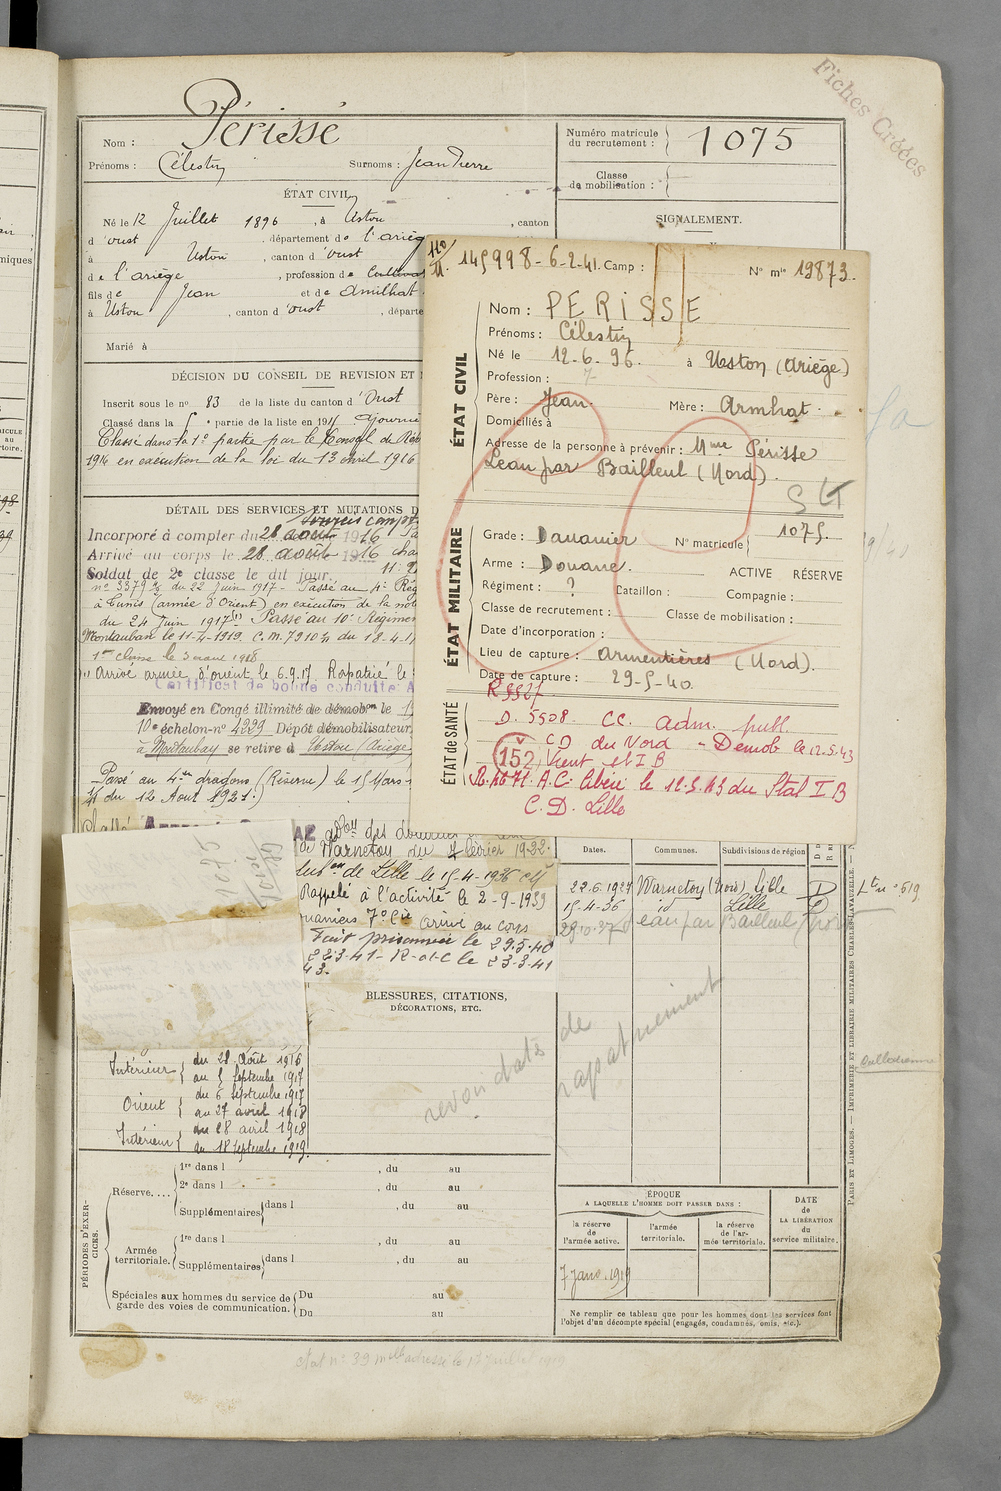 Fiches Créées
Nom : Périssé
Prénoms : Célestin Surnoms : Jean Pierre
Numéro matricule du recrutement : 1075
Classe de mobilisation :
ÉTAT CIVIL
SIGNALEMENT.
Né le 12 Juillet 1896, à Ustou, canton
d'oust, département de l'ariège
à Ustou, canton d'oust
de l'ariège, profession de Cultiva
fils de Jean et de Amilhat
à Ustou, canton d'oust, départe
Marié à
DÉCISION DU CONSEIL DE REVISION ET
Inscrit sous le no 83 de la liste du canton d'Oust
Classé dans la partie de la liste en 191
Classé dans la 1e partie par le Conseil de Rév
1914 en exécution de la loi du 13 avril 1916
DÉTAIL DES SERVICES ET MUTATIONS D
Incorporé à compter du 28 août 1916
Arrivé au corps le 28 août 1916
Soldat de 2e classe le dit jour.
no 3379 du 22 Juin 1917 - Passé au 4e Rég
à Tunis (armée d'Orient) en exécution de la not
du 24 Juin 1917 Passé au 10e Régimen
Montauban le 11-4-1919. C.M. 7910
1re classe le 3 mars 1918
Arrivé armée d'orient le 6.9.17. Rapatrié le
Certificat de bonne conduite A
Envoyé en Congé illimité de démobon le
10e échelon-no 4229 Dépôt démobilisateur
à Montauban se retire à Ustou (Ariège
Passé au 4e dragons (Réserve) le 15 Mars
du 12 Aout 1921.
Classé
don des douanes
de Warneton du 7 février 1922.
Subon de Lille le 15-4-1936
Rappelé à l'activité le 2-9-1939
ouaniers 7e Cie arrivé au corps
Fait prisonnier le 29.5.40
22-3-41 - R-ot-C le 23-3-41
43.
1075
BLESSURES, CITATIONS,
DÉCORATIONS, ETC.
Intérieur { du 28 Août 1916
au 5 Septembre 1917
Orient { du 6 Septembre 1917
au 27 avril 1918
Intérieur { du 28 avril 1918
au 18 Septembre 1919.
revoir date de rapatriement
PÉRIODES D'EXERCICES.
Réserve.... 1re dans l , du au
2e dans l , du au
Supplémentaires dans l , du au
Armée territoriale. 1re dans l , du au
Supplémentaires dans l , du au
Spéciales aux hommes du service de garde des voies de communication. Du au
Du au
110/11. 145998-6-2-41. Camp : No mle 19873.
ÉTAT CIVIL
Nom : PERISSE
Prénoms : Célestin
Né le 12-6.96. à Uston (Ariège)
Profession :
Père : Jean. Mère : Armhat.
Domiciliés à
Adresse de la personne à prévenir : Mme Périsse
Leau par Bailleul (Nord).
ÉTAT MILITAIRE
Grade : Douanier No matricule 1075.
Arme : Douane. ACTIVE RÉSERVE
Régiment : ? Bataillon : Compagnie :
Classe de recrutement : Classe de mobilisation :
Date d'incorporation :
Lieu de capture : Armentières (Nord).
Date de capture : 29-5-40.
ÉTAT de SANTÉ
D. 5508. CC. adm. publ.
152 CD du Nord - Demob le 12.5.43
Vient St I B
A.C. Libéré le 12-5.43 du Stal I B
C.D. Lille
Dates. Communes. Subdivisions de région
22.6.1927 Warneton (Nord) Lille D
15-4-36 id Lille D
29.10.37 Leau par Bailleul
Lt no 519
ÉPOQUE
A LAQUELLE L'HOMME DOIT PASSER DANS :
la réserve de l'armée active. l'armée territoriale. la réserve de l'armée territoriale.
DATE de LA LIBÉRATION du service militaire.
7 janv. 1919
Ne remplir ce tableau que pour les hommes dont les services font
l'objet d'un décompte spécial (engagés, condamnés, omis, etc.).
PARIS ET LIMOGES. — IMPRIMERIE ET LIBRAIRIE MILITAIRES CHARLES-LAVAUZELLE.